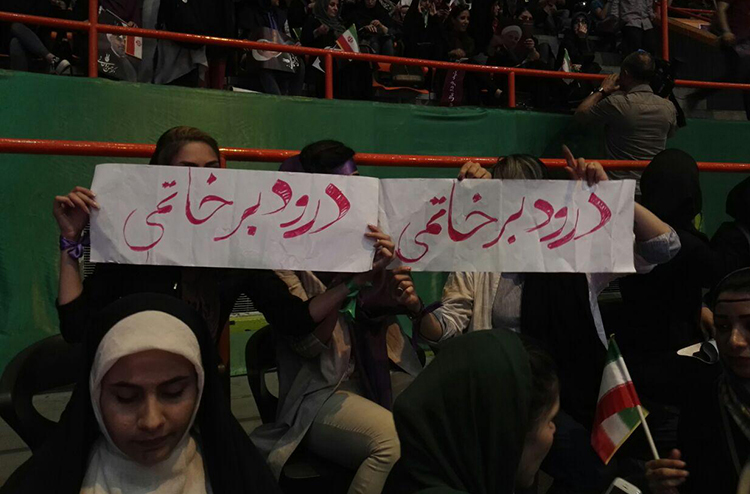 درود بر خاتمی
درود بر خاتمی